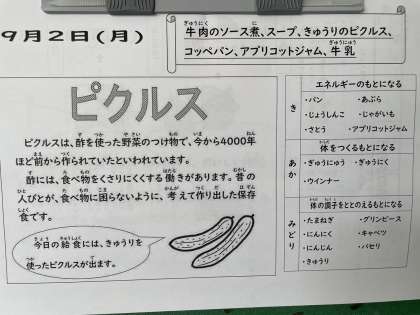 9月2日(月)
牛肉のソース煮、スープ、きゅうりのピクルス、
コッペパン、アプリコットジャム、牛乳
ピクルス
ピクルスは、酢を使った野菜のつけ物で、今から4000年
ほど前から作られていたといわれています。
酢には、食べ物をくさりにくくする働きがあります。昔の
人びとが、食べ物に困らないように、考えて作り出した保存
食です。
今日の給食には、きゅうりを
使ったピクルスが出ます。
き
エネルギーのもとになる
・パン ・あぶら
・じょうしんこ ・じゃがいも
・さとう ・アプリコットジャム
あか
体をつくるもとになる
・ぎゅうにゅう ・ぎゅうにく
・ウインナー
みどり
体の調子をととのえるもとになる
・たまねぎ ・グリンピース
・にんにく ・キャベツ
・にんじん ・パセリ
・きゅうり